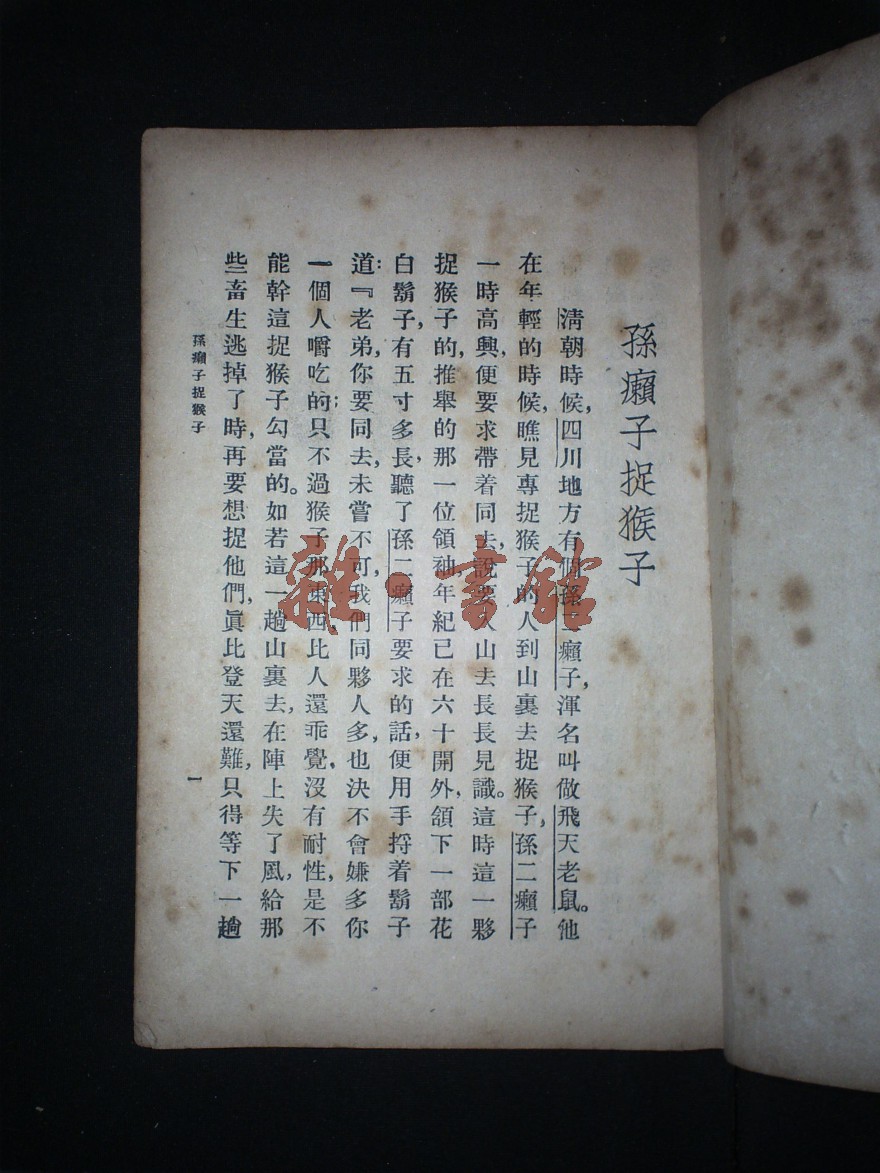 孫癩子捉猴子
清朝時候，四川地方有個孫二癩子，渾名叫做飛天老鼠。他
在年輕的時候，瞧見專捉猴子的人到山裏去捉猴子，孫二癩子
一時高興，便要求帶着同去，說要入山去長長見識。這時這一夥
捉猴子的，推舉的那一位領袖，年紀已在六十開外，頷下一部花
白鬍子，有五寸多長，聽了孫二癩子要求的話，便用手捋着鬍子
道：『老弟，你要同去，未嘗不可，我們同夥人多，也決不會嫌多你
一個人嚼吃的；只不過猴子那東西，比人還乖覺，沒有耐性，是不
能幹這捉猴子勾當的。如若這一趟山裏去，在陣上失了風，給那
些畜生逃掉了時，再要想捉他們，眞比登天還難，只得等下一趟
孫癩子捉猴子
一
雜·書館